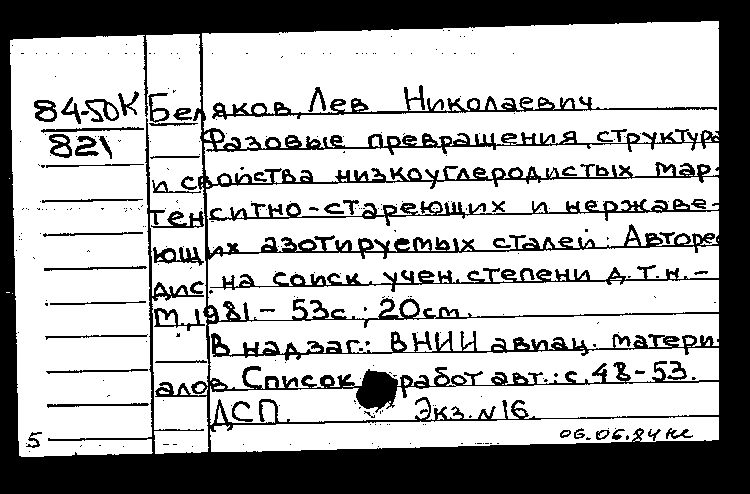 84-50К Беляков, Лев Николаевич.
821 Фазовые превращения, структура
и свойства низкоуглеродистых мар-
тенситно-стареющих и нержаве-
ющих азотируемых сталей: Авторе
дис. на соиск. учен. степени д.т.н. -
М., 1981. - 53с.; 20см.
В надзаг.: ВНИИ авиац. матери-
алов. Список работ авт.: с. 48-53.
ДСП. Экз. № 16.
5 06.06.84